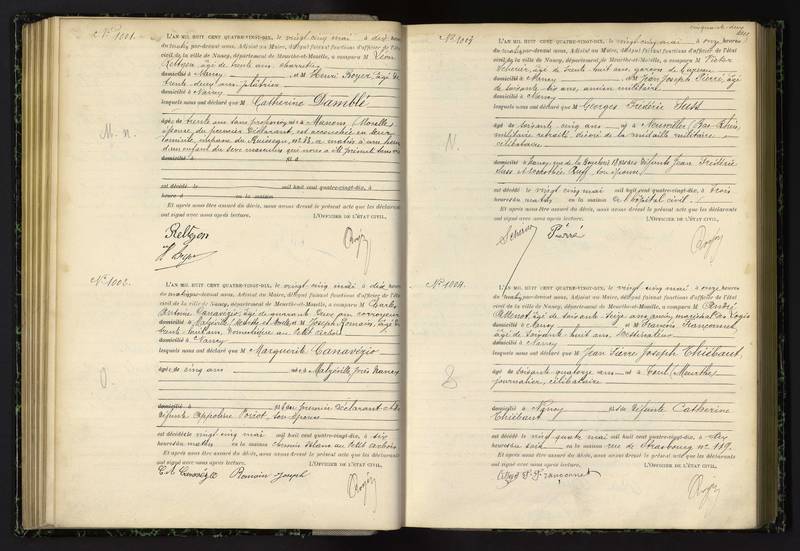 N° 1001.
L'AN MIL HUIT CENT QUATRE-VINGT-DIX, le vingt cinq mai à dix heures
du matin par-devant nous, Adjoint au Maire, délégué faisant fonctions d'officier de l'état
civil de la ville de Nancy, département de Meurthe-et-Moselle, a comparu M Léon
Reltgen, âgé de trente ans, charretier
domicilié à Nancy et M Henri Boyer, âgé de
trente deux ans, plâtrier
domicilié à Nancy
lesquels nous ont déclaré que M Catherine Damblé
M. n.
âgé de trente ans sans profession né à (Moselle)
épouse du premier déclarant, est accouchée en leur
domicile, impasse du Ruisseau, n° 33, ce matin à une heure
d'un enfant du sexe masculin qui nous a été présenté sans vie
domicilié à
est décédé le mil huit cent quatre-vingt-dix, à
heure à en la maison
Et après nous être assuré du décès, nous avons dressé le présent acte que les déclarants
ont signé avec nous après lecture. L'OFFICIER DE L'ÉTAT CIVIL,
Reltgen
N° 1002.
L'AN MIL HUIT CENT QUATRE-VINGT-DIX, le vingt cinq mai à dix heures
du matin par-devant nous, Adjoint au Maire, délégué faisant fonctions d'officier de l'état
civil de la ville de Nancy, département de Meurthe-et-Moselle, a comparu M Carlo
Antoine Canavézio, âgé de quarante deux ans, corroyeur
domicilié à Malzéville (Meurthe et Moselle) et M Joseph Romain, âgé de
trente huit ans, domestique au Petit Arbois
domicilié à Nancy
lesquels nous ont déclaré que M Marguerite Canavézio
âgée de cinq ans née à Malzéville, près Nancy
domicilié à fille du premier déclarant et de
défunte Appoline Poirot, son épouse
est décédée le vingt cinq mai mil huit cent quatre-vingt-dix, à six
heures du matin en la maison chemin blanc au Petit Arbois
Et après nous être assuré du décès, nous avons dressé le présent acte que les déclarants
ont signé avec nous après lecture. L'OFFICIER DE L'ÉTAT CIVIL,
Romain Joseph
N° 1003.
L'AN MIL HUIT CENT QUATRE-VINGT-DIX, le vingt cinq mai à onze heures
du matin par-devant nous, Adjoint au Maire, délégué faisant fonctions d'officier de l'état
civil de la ville de Nancy, département de Meurthe-et-Moselle, a comparu M Victor
Scherrer, âgé de trente huit ans, garçon de bureau
domicilié à Nancy et M Jean Joseph Pierré, âgé
de soixante dix ans, ancien militaire
domicilié à Nancy
lesquels nous ont déclaré que M Georges Frédéric Suss
N.
âgé de soixante cinq ans né à Neuwiller (Bas-Rhin),
militaire retraité, décoré de la médaille militaire
célibataire
domicilié à Nancy, fils de défunts Jean Frédéric
Suss et Dorothée Ruff son épouse
est décédé le vingt cinq mai mil huit cent quatre-vingt-dix, à trois
heures du matin en la maison de l'hôpital civil
Et après nous être assuré du décès, nous avons dressé le présent acte que les déclarants
ont signé avec nous après lecture. L'OFFICIER DE L'ÉTAT CIVIL,
Scherrer Pierré
N° 1004.
L'AN MIL HUIT CENT QUATRE-VINGT-DIX, le vingt cinq mai à onze heures
du matin par-devant nous, Adjoint au Maire, délégué faisant fonctions d'officier de l'état
civil de la ville de Nancy, département de Meurthe-et-Moselle, a comparu M André
âgé de soixante seize ans, ancien maréchal des logis
domicilié à Nancy et M François Françonnet,
âgé de soixante huit ans, destinateur
domicilié à Nancy
lesquels nous ont déclaré que M Jean Pierre Joseph Thiébaut,
âgé de soixante quatorze ans né à Toul (Meurthe)
journalier, célibataire
domicilié à Nancy fils de défunte Catherine
Thiébaut
est décédé le vingt quatre mai mil huit cent quatre-vingt-dix, à dix
heures du soir en la maison rue de Strasbourg n° 119.
Et après nous être assuré du décès, nous avons dressé le présent acte que les déclarants
ont signé avec nous après lecture. L'OFFICIER DE L'ÉTAT CIVIL,